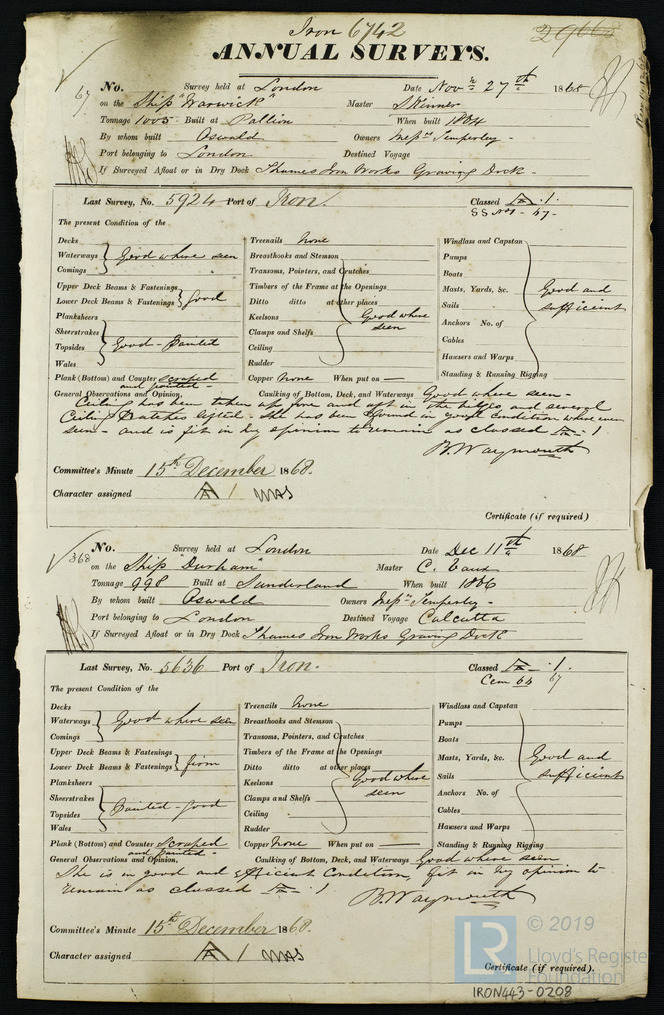 Iron 6742
ANNUAL SURVEYS.
67
No. Survey held at London Date Novr 27th 1868
on the Ship "Warwick" Master Skinner
Tonnage 1005 Built at Pallion When built 1864
By whom built Oswald Owners Messrs Temperley -
Port belonging to London Destined Voyage
If Surveyed Afloat or in Dry Dock Thames Iron Works Graving Dock -
Last Survey, No. 5924 Port of Iron. Classed A 1.
SS No 1 - 67-
The present Condition of the
Decks
Waterways Good where seen
Comings
Upper Deck Beams & Fastenings
Lower Deck Beams & Fastenings good
Planksheers
Sheerstrakes
Topsides Good - Painted
Wales
Plank (Bottom) and Counter scraped
and painted -
Treenails None
Breasthooks and Stemson
Transoms, Pointers, and Crutches
Timbers of the Frame at the Openings
Ditto ditto at other places
Keelsons Good where
Clamps and Shelfs seen
Ceiling
Rudder
Copper None When put on —
Windlass and Capstan
Pumps
Boats
Masts, Yards, &c. Good and
Sails sufficient
Anchors No. of
Cables
Hawsers and Warps
Standing & Running Rigging
General Observations and Opinion, Caulking of Bottom, Deck, and Waterways Good where seen -
Ceiling has been taken up fore and aft in the bilges and several
Ceiling Hatches lifted - She has been found in good condition where ever
seen - and is fit in my opinion to remain as classed A 1
B. Waymouth
Committee's Minute 15th December 1868.
Character assigned A 1
Certificate (if required)
368
No. Survey held at London Date Dec 11th 1868
on the Ship Durham Master C. Evans
Tonnage 998 Built at Sunderland When built 1866
By whom built Oswald Owners Messrs Temperley -
Port belonging to London Destined Voyage Calcutta
If Surveyed Afloat or in Dry Dock Thames Iron Works Graving Dock
Last Survey, No. 5636 Port of Iron. Classed A 1.
Cem 66 67
The present Condition of the
Decks
Waterways Good where seen
Comings
Upper Deck Beams & Fastenings
Lower Deck Beams & Fastenings firm
Planksheers
Sheerstrakes
Topsides Painted - good
Wales
Plank (Bottom) and Counter Scraped
and painted -
Treenails None
Breasthooks and Stemson
Transoms, Pointers, and Crutches
Timbers of the Frame at the Openings
Ditto ditto at other places
Keelsons Good where
Clamps and Shelfs seen
Ceiling
Rudder
Copper None When put on —
Windlass and Capstan
Pumps
Boats
Masts, Yards, &c. Good and
Sails sufficient
Anchors No. of
Cables
Hawsers and Warps
Standing & Running Rigging
General Observations and Opinion, Caulking of Bottom, Deck, and Waterways Good where seen
She is in good and efficient Condition, fit in my opinion to
remain as classed A 1
B. Waymouth
Committee's Minute 15th December 1868.
Character assigned A 1
Certificate (if required).
LR © 2019
Lloyd's Register
Foundation
IRON443-0208